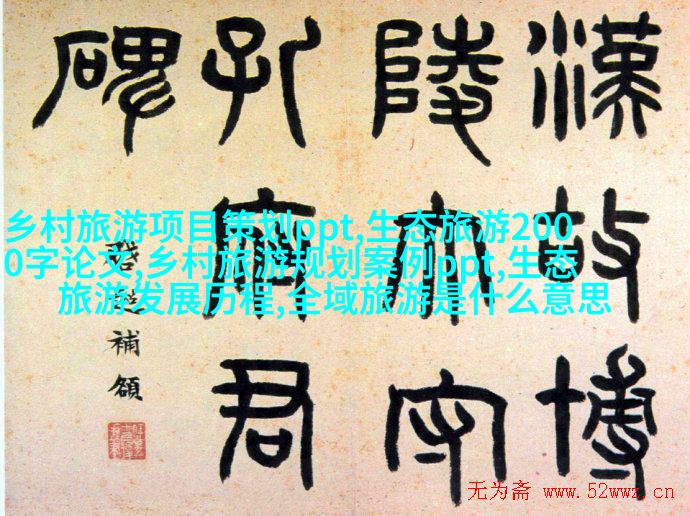 漢故博
陵太守
孔府君
碑
補額
乡村旅游项目策划ppt,生态旅游200
0字论文,乡村旅游规划案例ppt,生态
旅游发展历程,全域旅游是什么意思
无为斋 www.52wwz.cn